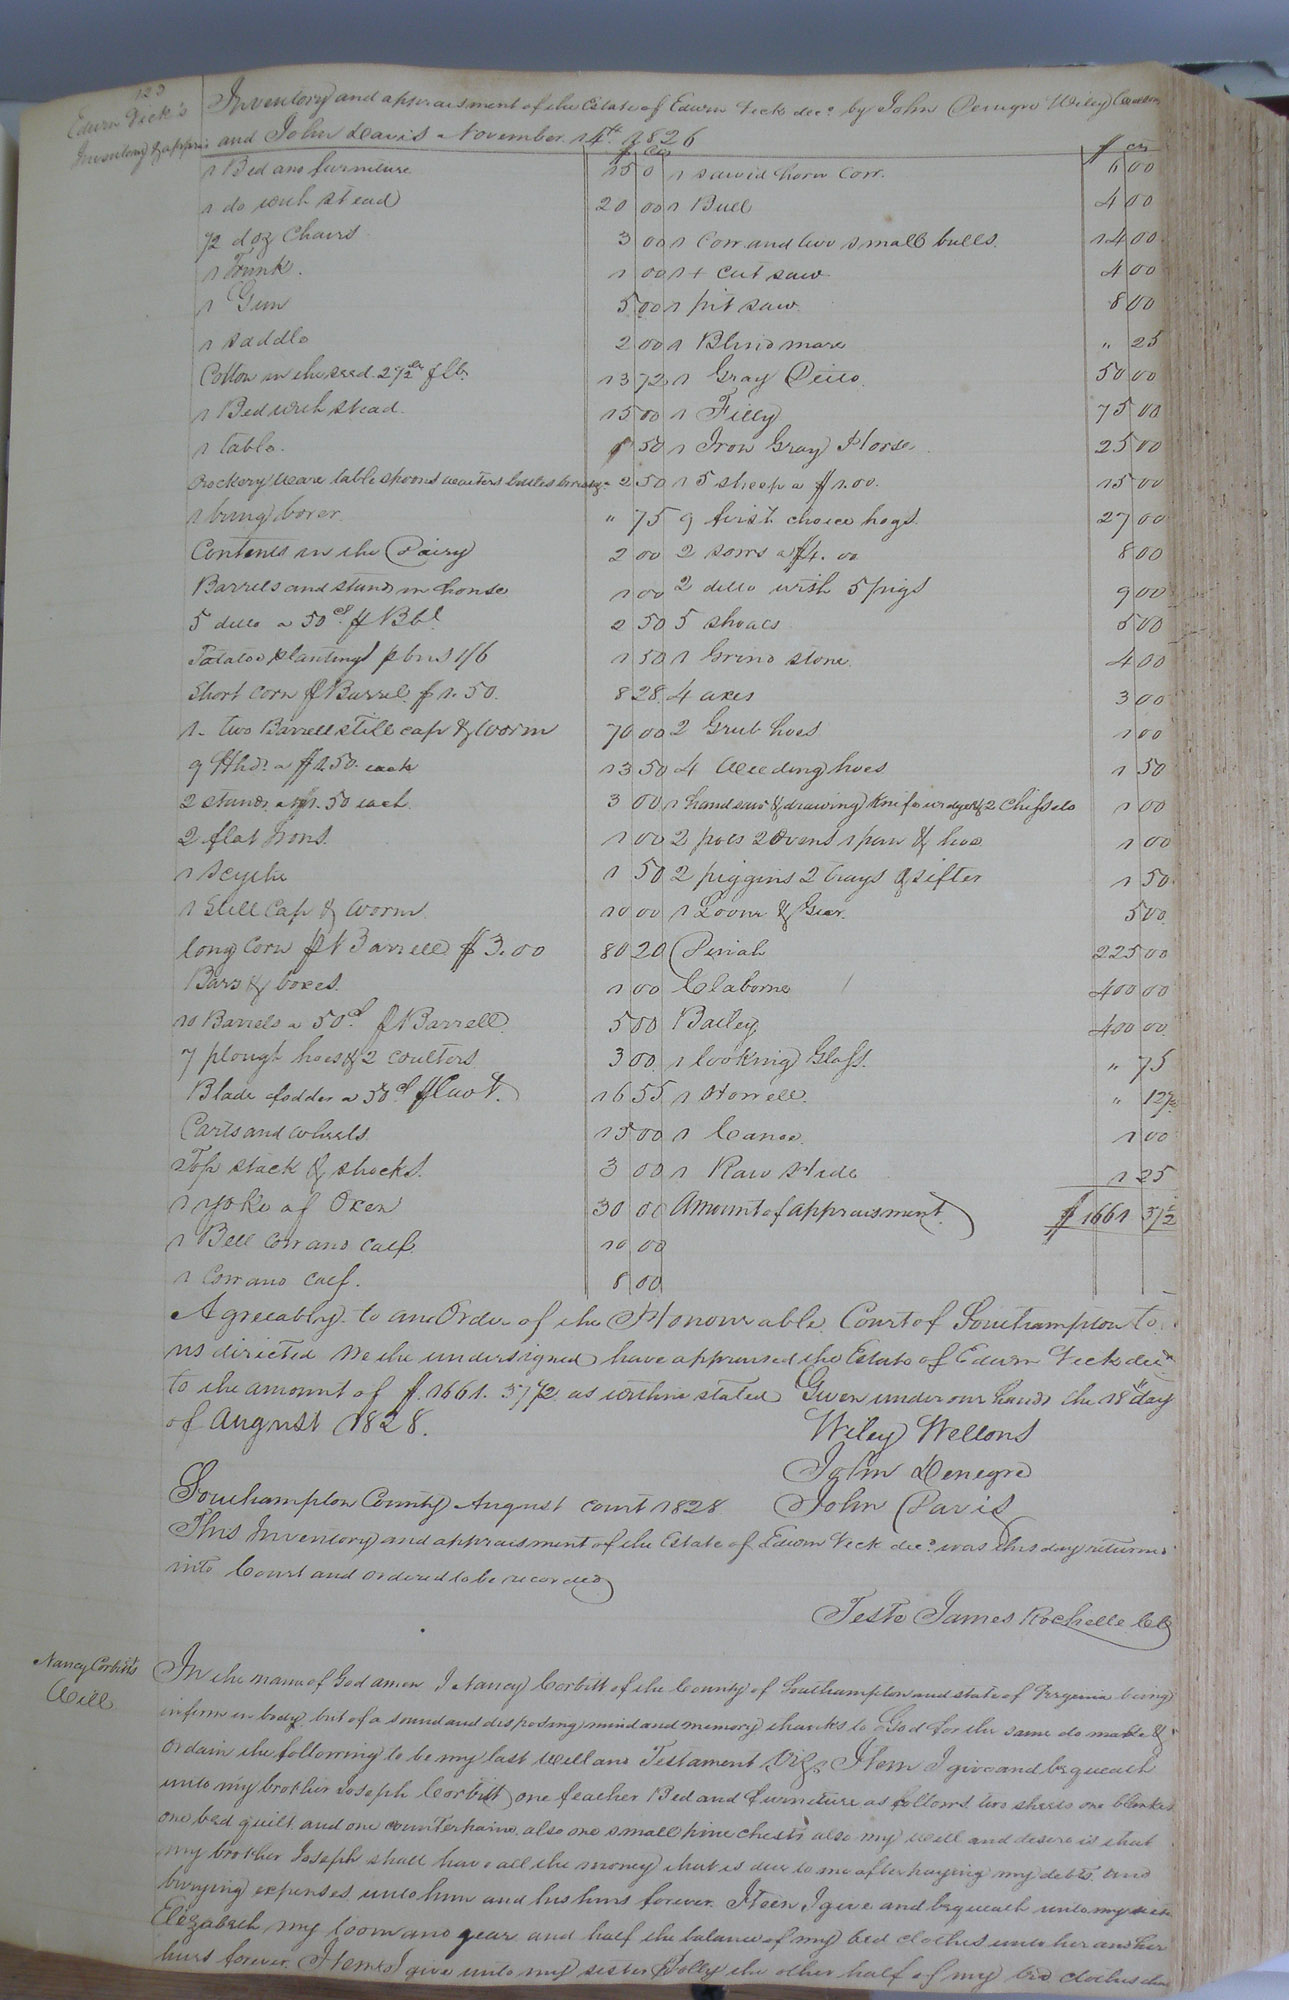 123
Edwin Vick's
Inventory & appr
Inventory and appraisment of the Estate of Edwin Vick decd by John Denegre Wiley
and John Davis November 14th 1826
$ Cts
$ cts
1 Bed and furniture 15 0 1 sawed horn Cow. 6 00
1 do with stead 20 00 1 Bull 4 00
1/2 doz Chairs 3 00 1 Cow and two small bulls. 14 00
1 Trunk. 1 00 1 + cut saw 4 00
1 Gun 5 00 1 pit saw 8 00
1 saddle 2 00 1 Blind mare " 25
Cotton in the seed 2 1/2 cts lb. 13 72 1 Gray Ditto 50 00
1 Bed with stead. 15 00 1 Filly 75 00
1 table. 50 1 Iron Gray Horse 25 00
Crockery Ware table spoons waiters 2 50 15 sheep a $1.00. 15 00
1 bung borer. " 75 9 first choice hogs 27 00
Contents in the Dairy 2 00 2 sows a $4.00 8 00
Barrels and stand in house 1 00 2 ditto with 5 pigs 9 00
5 ditto a 50cts Bbl 2 50 5 shoats 5 00
Potatoe planting 1/6 1 50 1 Grind stone 4 00
Short corn Barrel $1.50. 8 28 4 axes 3 00
1 two Barrell still cap & Worm 70 00 2 Grub hoes 1 00
9 Hhds a $1.50 each 13 50 4 Weeding hoes 1 50
2 stands a $1.50 each 3 00 1 handsaw & drawing knife wedge & 2 Chissels 1 00
2 flat Irons. 1 00 2 pots 2 Ovens 1 pan & hoe 1 00
1 scythe 1 50 2 piggins 2 trays & sifter 1 50
1 Still Cap & Worm 10 00 1 Loom & Gear. 5 00
long Corn Barrell $3.00 80 20 Periah 225 00
Bars & boxes. 1 00 Claborne 400 00
10 Barrels a 50cts Barrell. 5 00 Bailey 400 00
7 plough hoes & 2 coulters 3 00 1 looking Glass. " 75
Blade fodder a 50cts 16 55 1 Howell. " 12 1/2
Carts and Wheels. 15 00 1 Canoe. 1 00
Top stack & shucks. 3 00 1 Raw Hide 1 25
1 yoke of Oxen 30 00 Amount of appraisment. $1661 37 1/2
1 Bell Cow and calf 10 00
1 Cow and calf. 8 00
Agreeably to an Order of the Honourable Court of Southampton to
us directed We the undersigned have appraised the Estate of Edwin Vick decd
to the amount of $1661.37 1/2 as within stated Given under our hands the 18th day
of August 1828.
Wiley Wellons
John Denegre
Southampton County August court 1828 John Davis
This Inventory and appraisment of the Estate of Edwin Vick decd was this day returned
into Court and ordered to be recorded
Teste James Rochelle CC
Nancy Corbitt's
Will
In the name of God amen I Nancy Corbitt of the County of Southampton and state of Virginia being
infirm in body but of a sound and disposing mind and memory thanks to God for the same do make &
Ordain the following to be my last Will and Testament Viz, Item I give and bequeath
unto my brother Joseph Corbitt one feather Bed and furniture as follows two sheets one blanket
one bed quilt and one counterpaine also one small pine chest also my will and desire is that
my brother Joseph shall have all the money that is due to me after paying my debts and
burying expenses unto him and his hiers forever. Item I give and bequeath unto my
Elizabeth my loom and gear and half the balance of my bed clothes unto her and her
hiers forever. Item I give unto my sister Polly the other half of my bed clothes